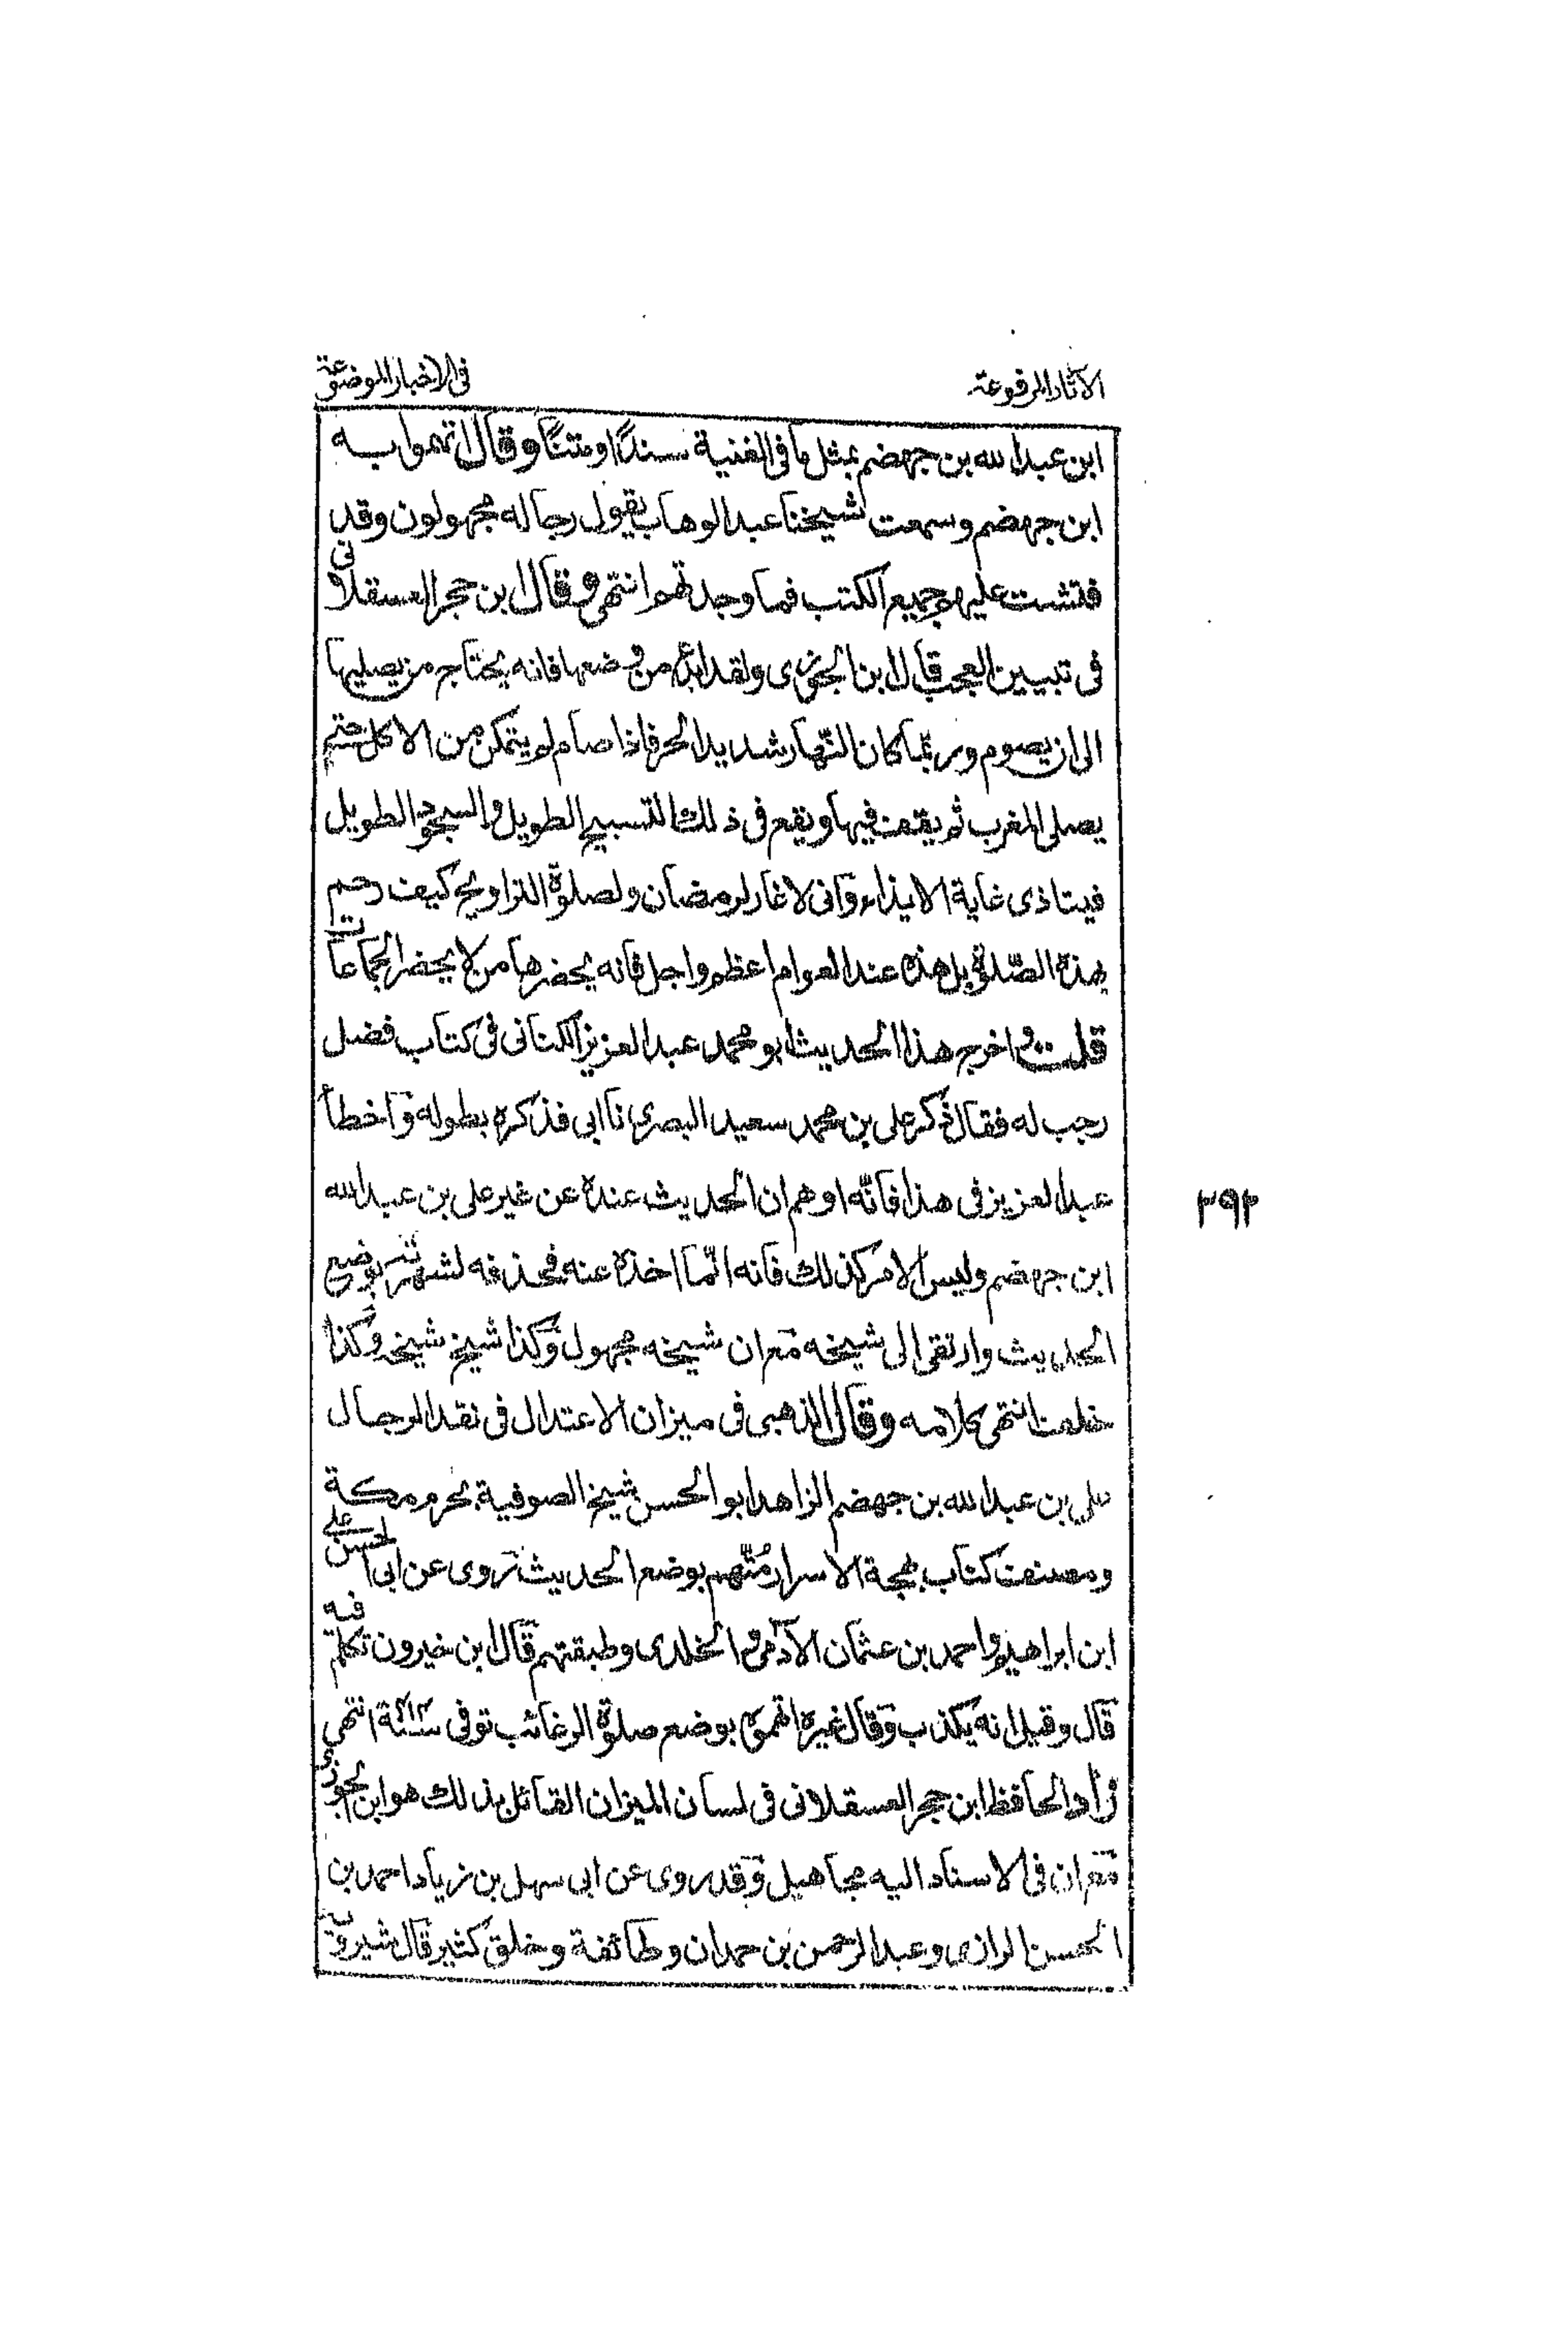 الآثار المرفوعة
فى الاخبار الموضوعة
ابن عبد الله بن جهضم بمثل ما فى الغنية سندًا ومتنًا وقال اتهموا به
ابن جهضم وسمعت شيخنا عبد الوهاب يقول رجاله مجهولون وقد
فتشت عليهم جميع الكتب فما وجدتهم انتهى وقال ابن حجر العسقلانى
فى تبيين العجب قال ابن الجوزى ولقد ابدع من وضعها فانه يحتاج من يصليها
الى ان يصوم وربّما كان النّهار شديد الحر فاذا صام لم يتمكن من الاكل حتى
يصلى المغرب ثم يقف فيها ويقع فى ذلك التسبيح الطويل والسجود الطويل
فيتاذى غاية الايذاء وانى لاغار لرمضان ولصلوة التراويح كيف زحم
بهذه الصّلوة بل هذه عند العوام اعظم واجل فانه يحضرها من لا يحضر الجماعات
قلت واخرج هذا الحديث ابو محمد عبد العزيز الكتانى فى كتاب فضل
رجب له فقال ذكر على بن محمد سعيد البصرى انا ابى فذكره بطوله واخطأ
عبد العزيز فى هذا فانّه اوهم ان الحديث عنده عن غير على بن عبد الله
ابن جهضم وليس الامر كذلك فانه انّما اخذه عنه فحذفه لشهرته بوضع
الحديث وارتقى الى شيخه مع ان شيخه مجهول وكذا شيخ شيخه وكذا
خلف انتهى كلامه وقال الذهبى فى ميزان الاعتدال فى نقد الرجال
على بن عبد الله بن جهضم الزاهد ابو الحسن شيخ الصوفية بحرم مكة
ومصنف كتاب بهجة الاسرار مُتّهم بوضع الحديث روى عن ابى الحسن على
ابن ابراهيم واحمد بن عثمان الآدمى والخلدى وطبقتهم قال ابن خيرون تكلم فيه
قال وقيل انه يكذب وقال غيره اتهموه بوضع صلوة الرغائب توفى سنة ٤١٤ انتهى
زاد الحافظ ابن حجر العسقلانى فى لسان الميزان القائل بذلك هو ابن الجوزى
مع ان فى الاسناد اليه مجاهيل وقد روى عن ابى سهل بن زياد احمد بن
الحسن الرازى وعبد الرحمن بن حمدان وطائفة وخلق كثير قال شيرويه
٣٩٢